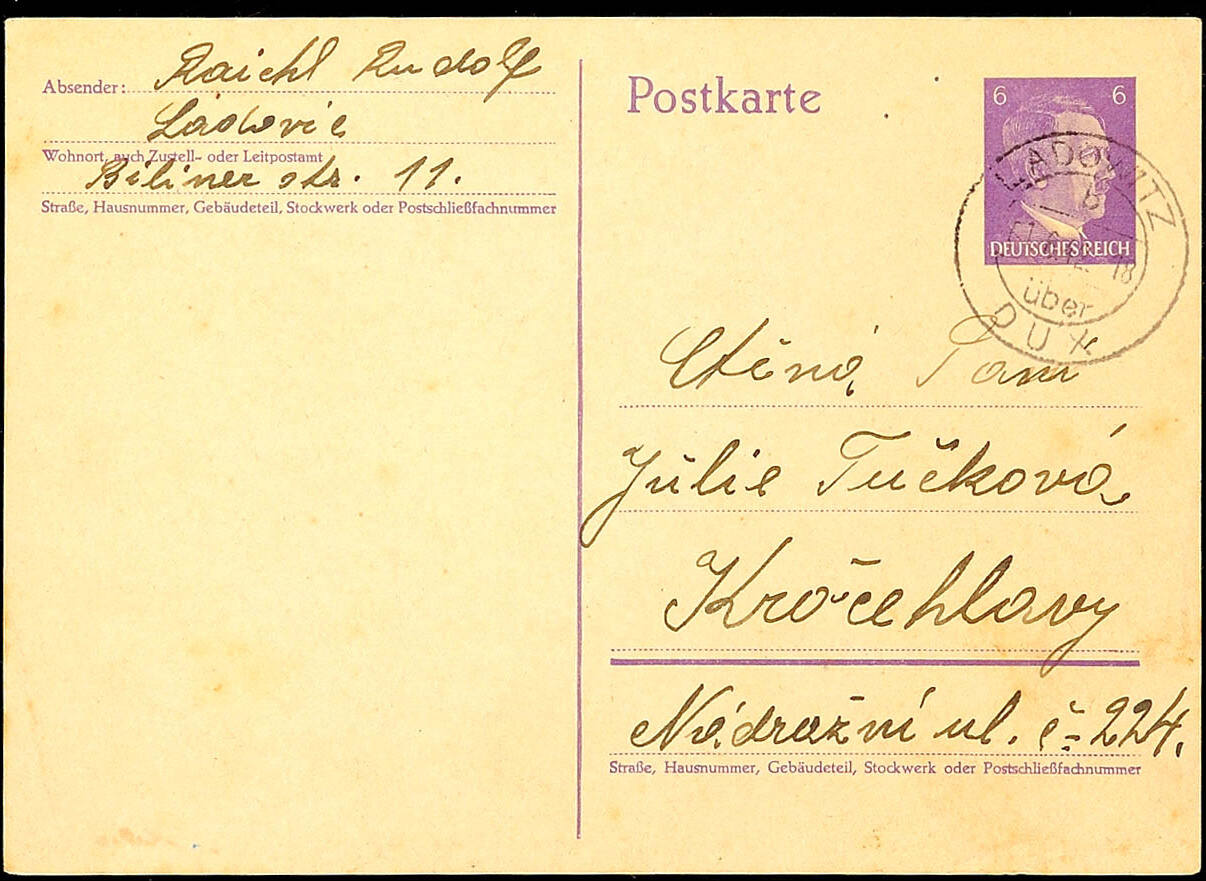 Absender: Raichl Rudolf
Ladovic
Wohnort, auch Zustell- oder Leitpostamt
Biliner str. 11.
Straße, Hausnummer, Gebäudeteil, Stockwerk oder Postschließfachnummer
Postkarte
6 6
DEUTSCHES REICH
LADOWITZ
b
18
über
DUX
Ctěná Paní
Julie Tučková
Kročehlavy
Nádražní ul. č. 224.
Straße, Hausnummer, Gebäudeteil, Stockwerk oder Postschließfachnummer